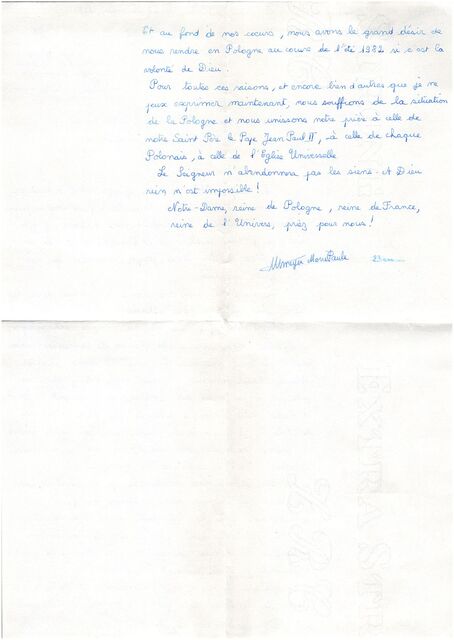 Et au fond de nos cœurs, nous avons le grand désir de
nous rendre en Pologne au cours de l'été 1982 si c'est la
volonté de Dieu.
Pour toutes ces raisons, et encore bien d'autres que je ne
peux exprimer maintenant, nous souffrons de la situation
de la Pologne et nous unissons notre prière à celle de
notre Saint Père le Pape Jean Paul II, à celle de chaque
Polonais, à celle de l'Eglise Universelle
Le Seigneur n'abandonnera pas les siens. A Dieu
rien n'est impossible !
Notre-Dame, reine de Pologne, reine de France,
reine de l'Univers, priez pour nous !
Marie Paule 23 ans
EXTRA ST